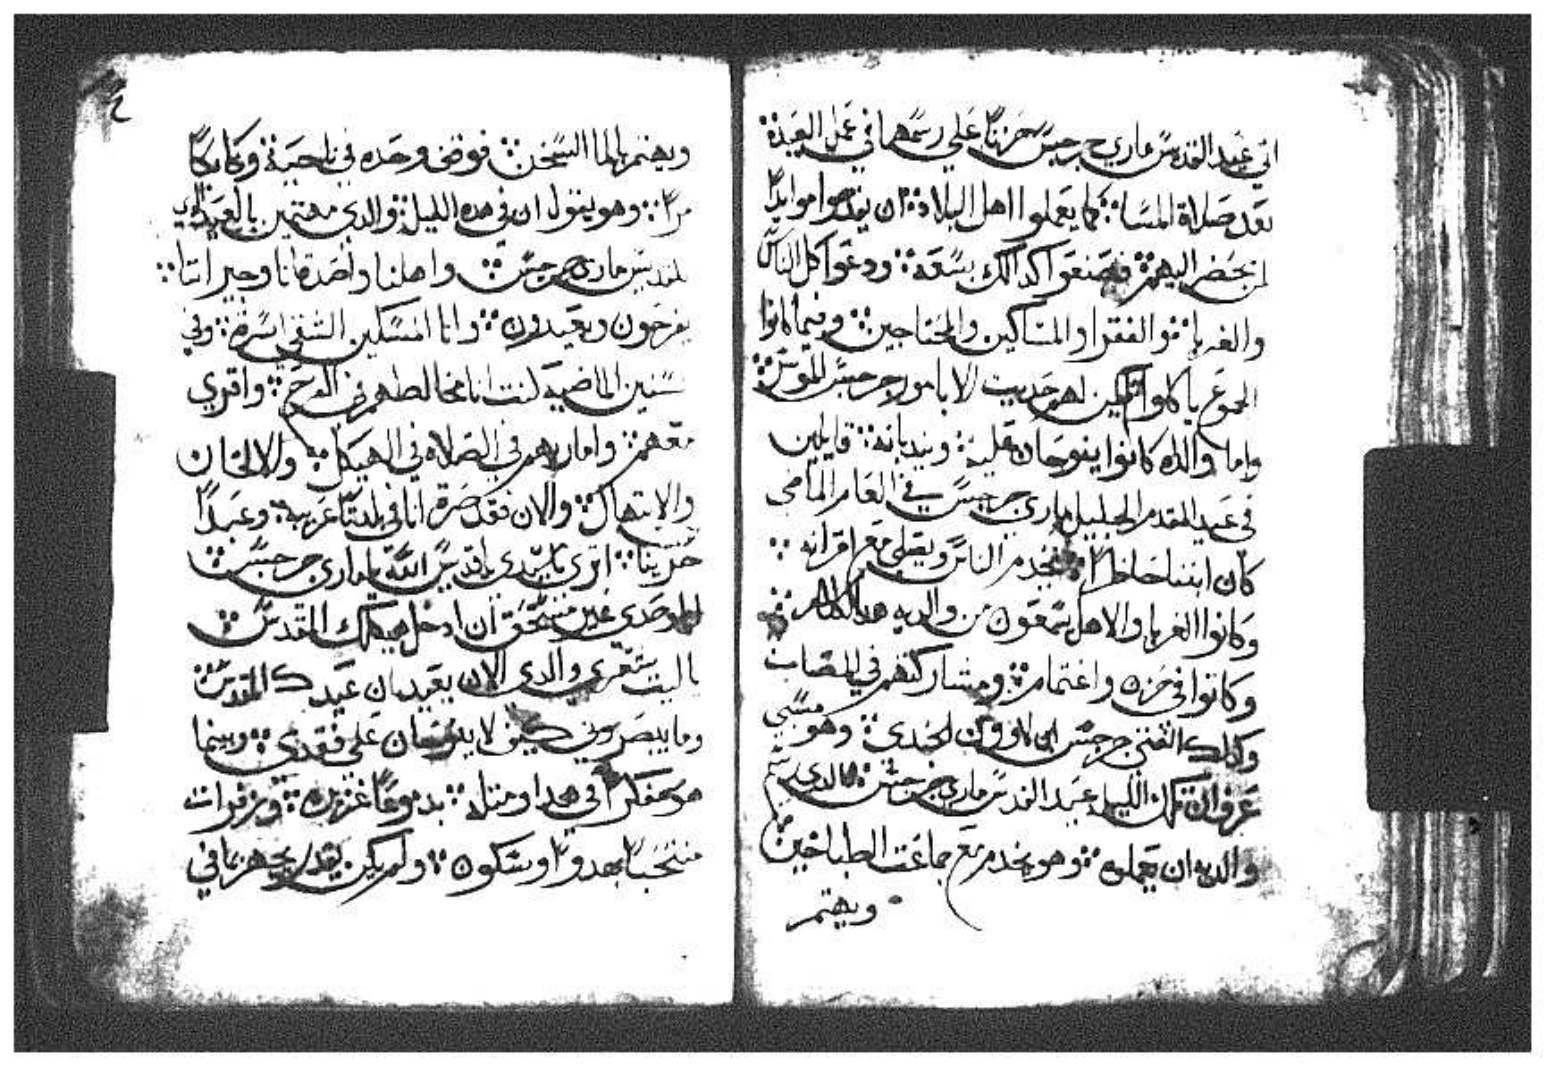 اتي عيد القديس ماري جرجس عزما علي رسمهما في عمل العيدة
بعد صلاة المسا كما يعملوا اهل البلاد ان يفدموا موايدا
لمن يحضر اليهم فصنعوا كذالك بسعة ودعوا كل الناس
والغربا والفقرا والمساكين والمحتاجين وفيما كانوا
الجموع ياكلوا لهم حديت الا بامور جرجس
واما والداه كانوا ينوحان عليه ويندبانه قايلين
في عيد القديس الجليل ماري جرجس في العام الماضي
كان ابننا حاظرا يخدم الناس ويصلي مع اقرانه
وكانوا الغربا والاهل يسمعون من والديه هدا الكلام
وكانوا في حزن واغتمام ومشاركتهم في المصاب
وكدلك الفتي جرجس ابن لاوون الجندي وهو مسبي
عرف ان تلك الليله عيد القديس ماري جرجس الذي رسم
والديه ان يعملوه وهو يخدم مع جماعت الطباخين
ويهتم
ويهتم بالما السخن فوضي وحده في ناحية وكا بكا
مرا وهو يقول ان في هده الليلة والدي مهتمين بالعيد الي
القديس ماري جرجس واهلنا واصدقانا وجيراننا
يفرحون ويعيدون وانا المسكين الشقي اسره وفي
السنين الماضيه كنت انا مخالطهم في الفرح واقري
معهم وامارهم في الصلاه في الهيكل والالحان
والابتهال والان فقد صرة انا في بلدتا غريبة وعبدا
حزينا اتري يا سيدي يا قديس الله يا ماري جرجس
وحدي غير مستحق ان ادخل هيكلك المقدس
يا ليت شعري والدي الان يعيدان عيدك المقدس
وما يبصروني كيف لا ينوحان علي فقدي وبينما
هو مفكرا في هدا ومتله بدموعا غزيره وزفرات
منتحبا بهدوا وسكون ولم يكن يقدر يجهر بما في